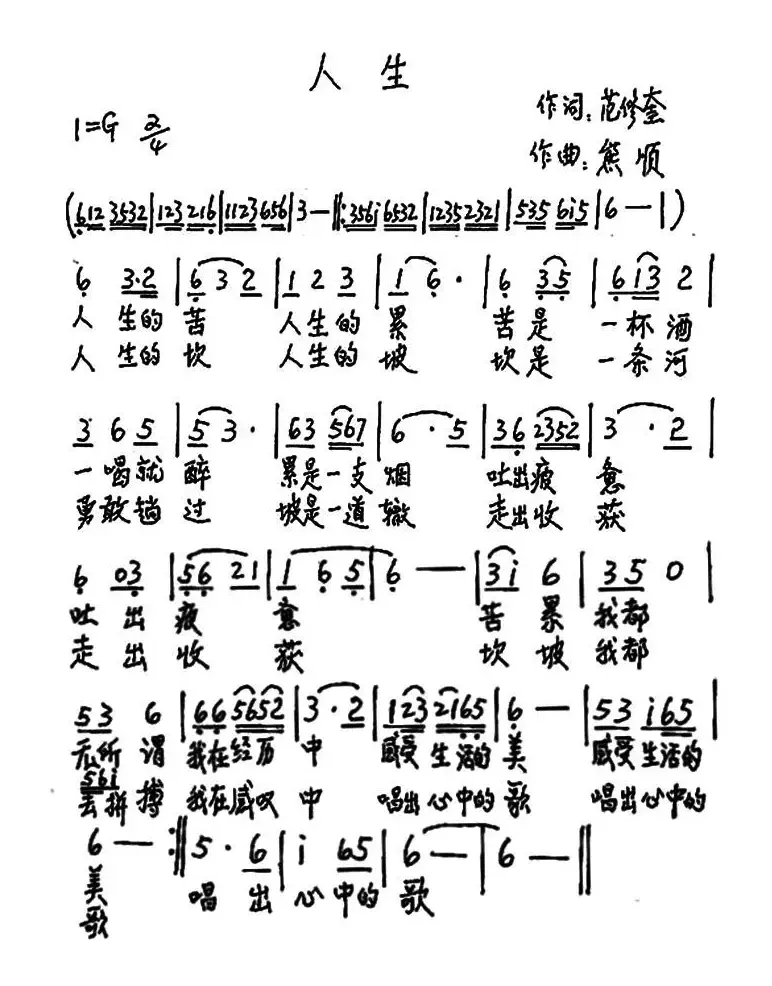 人 生
作词：范修奎
1=G 2/4
作曲：熊 顺
(612 3532|123 216|1123 656|3—‖:3561 6532|1235 2321|535 6i5|6—|)
6 3·2|6 3 2|1 2 3|1 6·|6 35|6i3 2|
人 生的 苦 人生的 累 苦是 一杯 酒
人 生的 坎 人生的 坡 坎是 一条 河
3 6 5|5 3·|63 567|6·5|36 2352|3·2|
一喝就 醉 累是一支 烟 吐出疲 惫
勇敢趟 过 坡是一道 辙 走出收 获
6 03|56 21|1 6 5|6—|3i 6|35 0|
吐 出 疲 惫 苦 累 我都
走 出 收 获 坎 坡 我都
53 6|66 5652|3·2|123 2165|6—|53 i65|
无所 谓 我在经历 中 感受 生活的 美 感受生活的
56i
去拼 搏 我在感叹 中 唱出心中的 歌 唱出心中的
6—:‖5·6|i 65|6—|6—‖
美 唱 出 心 中的 歌
歌